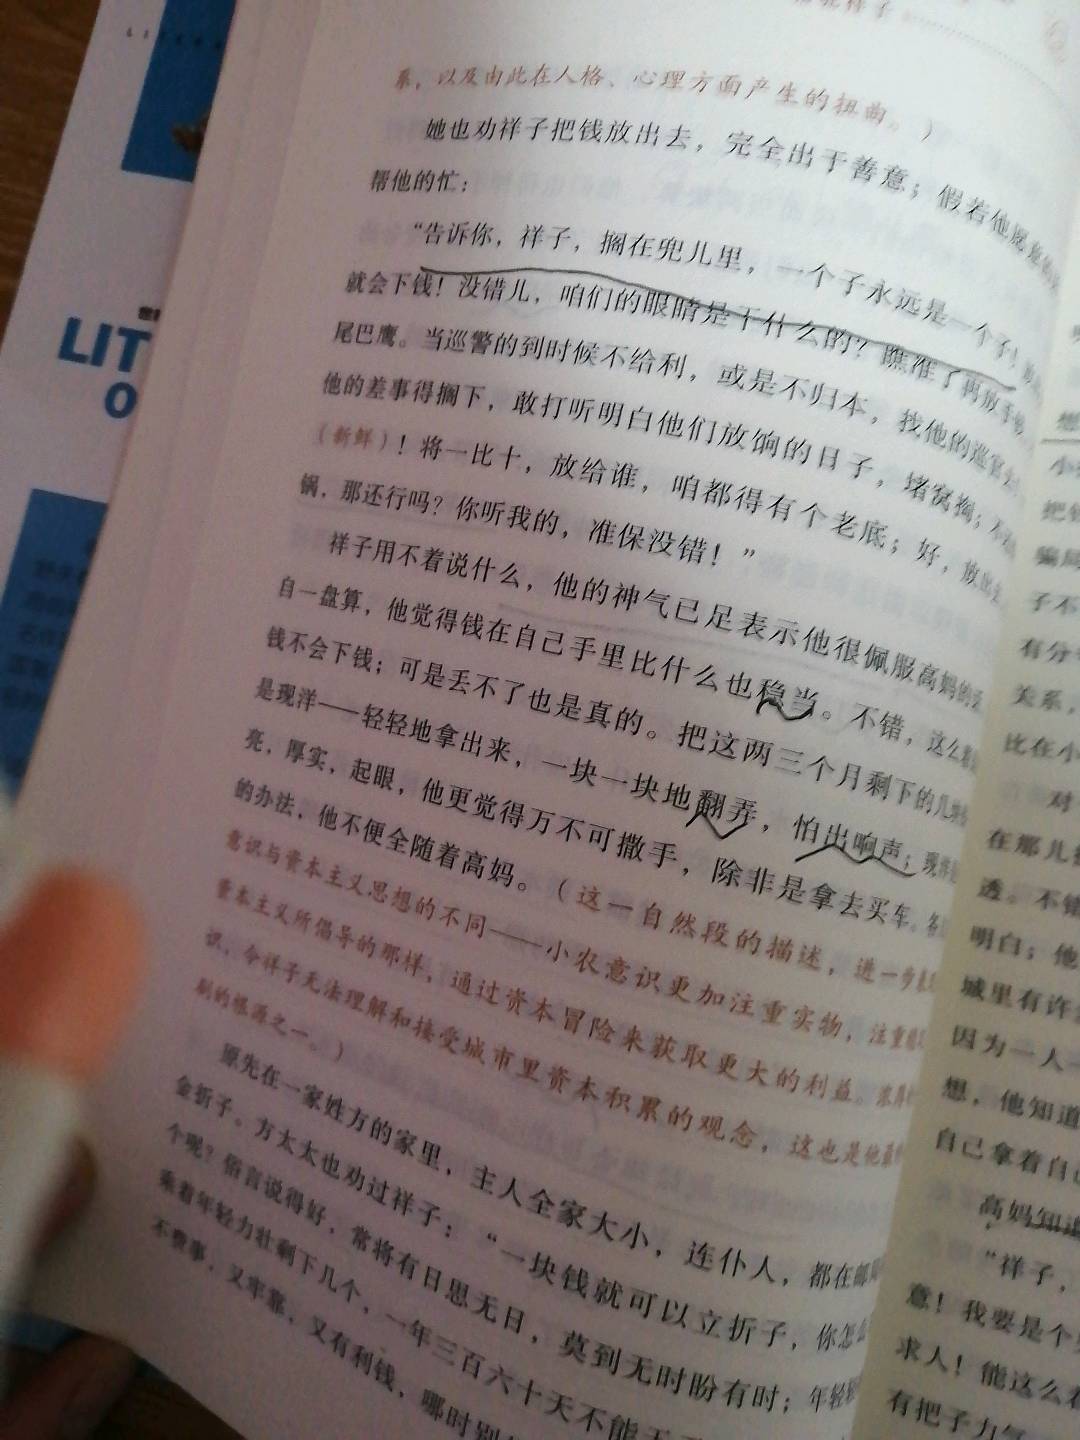 系，以及由此在人格、心理方面产生的扭曲。）
她也劝祥子把钱放出去，完全出于善意；假若他愿意
帮他的忙：
“告诉你，祥子，搁在兜儿里，一个子永远是一个子！
就会下钱！没错儿，咱们的眼睛是干什么的？瞧准了再放手
尾巴鹰。当巡警的到时候不给利，或是不归本，找他的巡官
他的差事得搁下，敢打听明白他们放饷的日子，堵窝掏；不
（新鲜）！将一比十，放给谁，咱都得有个老底；好，放出
锅，那还行吗？你听我的，准保没错！”
祥子用不着说什么，他的神气已足表示他很佩服高妈的
自一盘算，他觉得钱在自己手里比什么也稳当。不错，这么
钱不会下钱；可是丢不了也是真的。把这两三个月剩下的几
是现洋——轻轻地拿出来，一块一块地翻弄，怕出响声；现洋
亮，厚实，起眼，他更觉得万不可撒手，除非是拿去买车。各
的办法，他不便全随着高妈。（这一自然段的描述，进一步
意识与资本主义思想的不同——小农意识更加注重实物，注重
资本主义所倡导的那样，通过资本冒险来获取更大的利益。
识，令祥子无法理解和接受城市里资本积累的观念，这也是他
剧的根源之一。）
原先在一家姓方的家里，主人全家大小，连仆人，都在邮
金折子。方太太也劝过祥子：“一块钱就可以立折子，你怎么
个呢？俗言说得好，常将有日思无日，莫到无时盼有时；年轻
乘着年轻力壮剩下几个，一年三百六十天不能天
不费事，又牢靠，又有利钱，哪时别
LIT
O
小
把
骗局
子不
有分
关系，
比在小
对
在那儿
透。不错
明白；他
城里有许
因为一人
想，他知道
自己拿着自己
高妈知道
“祥子，
意！我要是个
求人！能这么
有把子力气